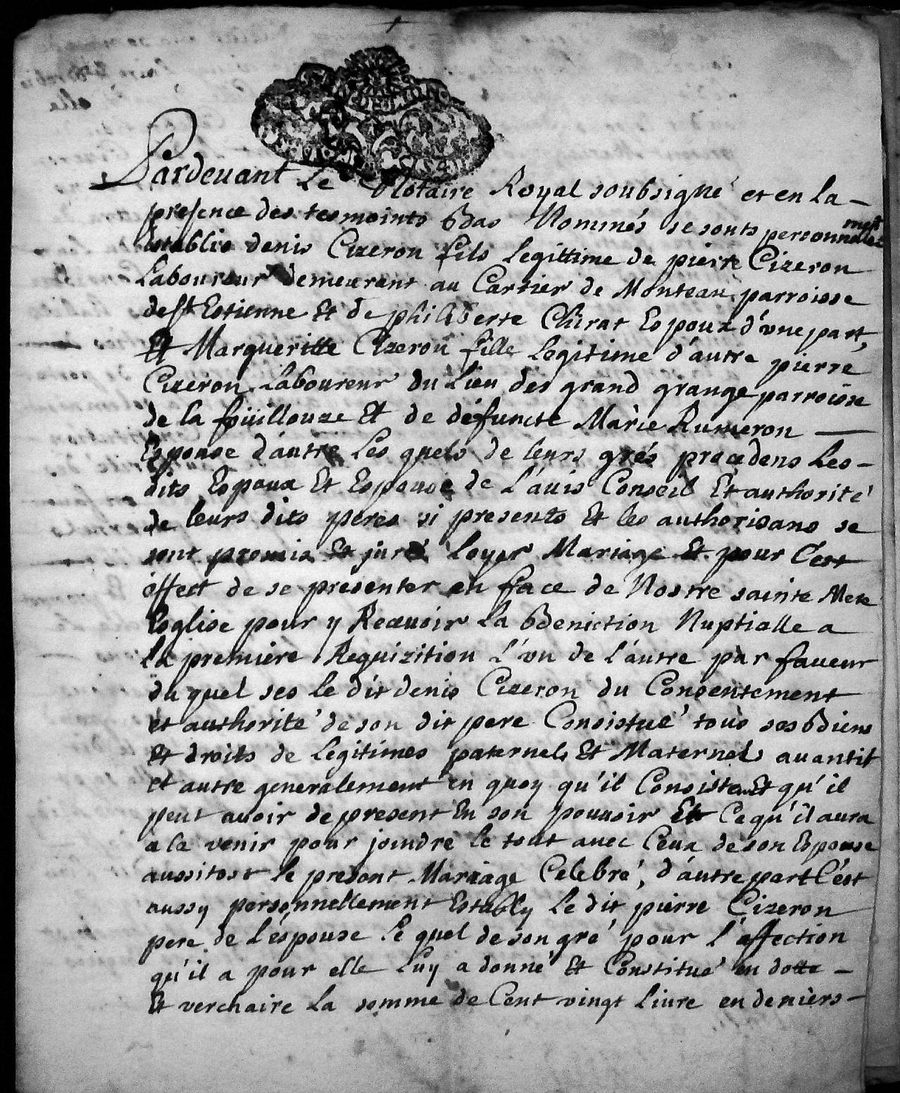 Pardevant Le Notaire Royal soubsigné et en la
presence des tesmoints bas Nommés se sonts personnellement
establis denis Cizeron fils Legittime de pierre Cizeron
Laboureur demeurant au Cartier de Monteau parroisse
de st Estienne et de philiberte Chirat Espoux d'une part,
Et Margueritte Cizeron fille Legitime d'autre pierre
Cizeron Laboureur du Lieu des grand grange parroisse
de la fouillouze Et de défuncte Marie Rumeron
Espouse d'autre Les quels de leurs grés procedens Les
dits Espoux Et Espouse de L'auis Conseil Et authorité
de leurs dits peres si presents Et les authorisans se
sont promis Et juré Loyer Mariage Et pour C'est
effect de se presenter en face de Nostre sainte Mere
Esglise pour y Receuoir La bdeniction Nuptialle a
La premiere Requizition L'un de L'autre par faueur
du quel ses le dit denis Cizeron du Consentement
et authorité de son dit pere Consistué tous ses bdiens
Et droits de Legitimes paternels Et Maternels auantit
et autre generalement en quoy qu'il Consistent Et qu'il
peut auoir de present En son pouvoir Et Ce qu'il aura
a la venir pour joindre le tout auec Ceux de son Espouse
aussitost le present Mariage Celebré, d'autre part C'est
aussy personnellement Estably Le dit pierre Cizeron
pere de L'espouse Le quel de son gré pour L'affection
qu'il a pour elle Luy a donné Et Constitué en dotte
Et verchaire La somme de Cent vingt Livre en deniers